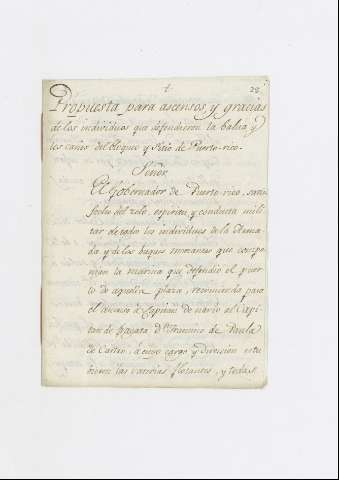 28
Propuesta para ascensos, y gracias
de los individuos que defendieron la bahia, y
los caños del bloqueo y Sitio de Puerto-rico.
Señor
El Gobernador de Puerto-rico, satis
fecho del zelo, espiritu, y conducta mili
tar de todos los individuos de la Arma
da y de los buques mercantes que compo
nian la marina que defendio el puer
to de aquella plaza, recomienda para
el ascenso á Capitan de navio al Capi
tan de fragata Dn. Francisco de Paula
de Castro, á cuyo cargo y direccion estu
bieron las fuerzas flotantes, y todas